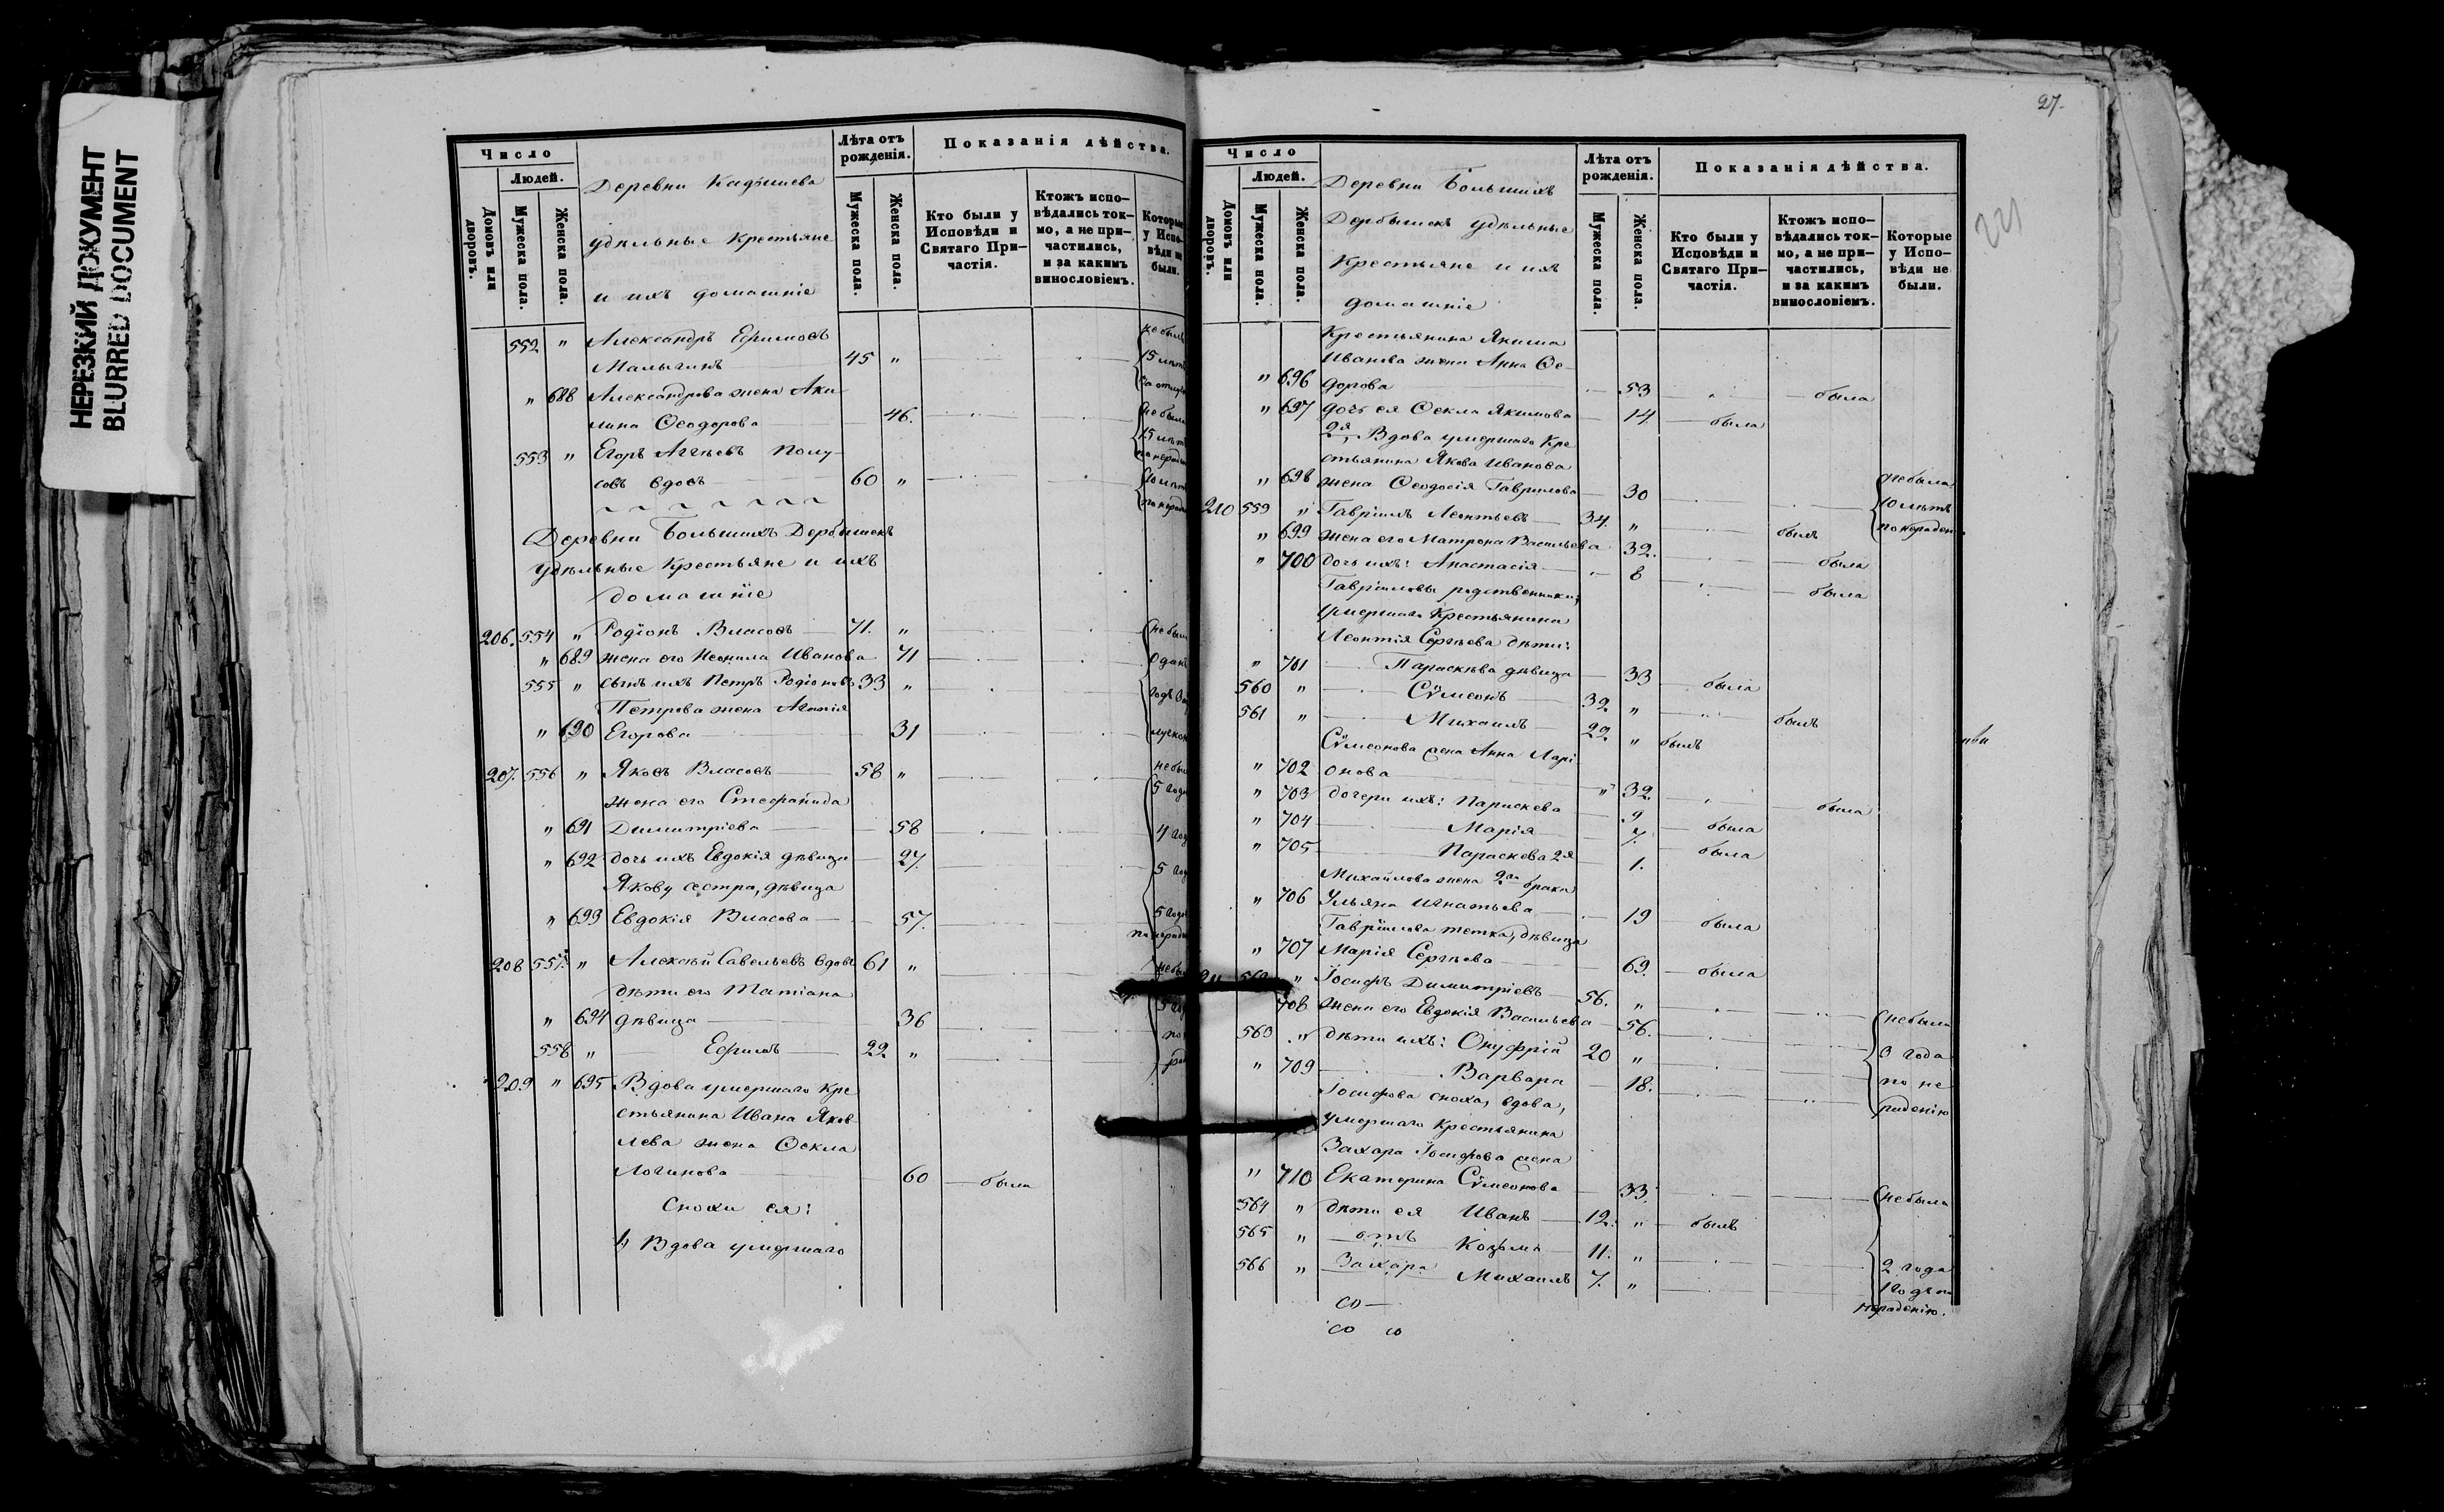 НЕРЕЗКИЙ ДОКУМЕНТ
BLURRED DOCUMENT
Число
Людей.
Домовъ или дворовъ.
Мужеска пола.
Женска пола.
Деревни Кадышева
удѣльные Крестьяне
и ихъ домашніе
Лѣта отъ рожденія.
Мужеска пола.
Женска пола.
Показанія дѣйства.
Кто были у Исповѣди и Святаго При-частія.
Ктожъ испо-вѣдались ток-мо, а не при-частились, и за какимъ винословіемъ.
Которые у Испо-вѣди не были.
552 " Александръ Ефимовъ
Малыгинъ 45 "
" 688 Александрова жена Аку-
лина Ѳеодорова 46.
553 " Егоръ Аггѣевъ
вдовъ 60 "
Деревни Большихъ Дербышекъ
удѣльные Крестьяне и ихъ
домашніе
206. 554 " Родіонъ Власовъ 71. "
" 689 жена его Неонила Иванова 71
555 " сынъ ихъ Петръ Родіоновъ 33 "
Петрова жена Агапія
" 690 Егорова 31
207. 556 " Яковъ Власовъ 58 "
жена его Стефанида
" 691 Димитріева 58
" 692 дочь ихъ Евдокія дѣвица 27.
Якову сестра, дѣвица
" 693 Евдокія Власова 57.
208 557. " Алексѣй Савельевъ вдовъ 61 "
дѣти его Татіана
" 694 дѣвица 36
558 " Ефимъ 22 "
209 " 695 Вдова умершаго Кре
стьянина Ивана Яков-
лева жена Ѳекла
Логинова 60 была
Снохи ея:
1) Вдова умершаго
27.
221
Число
Людей.
Домовъ или дворовъ.
Мужеска пола.
Женска пола.
Деревни Большихъ
Дербышекъ удѣльные
Крестьяне и ихъ
домашніе
Лѣта отъ рожденія.
Мужеска пола.
Женска пола.
Показанія дѣйства.
Кто были у Исповѣди и Святаго При-частія.
Ктожъ испо-вѣдались ток-мо, а не при-частились, и за какимъ винословіемъ.
Которые у Испо-вѣди не были.
Крестьянина Якима
Иванова жена Анна Ѳе-
" 696 дорова 53 была
" 697 дочь ея Ѳекла Якимова 14. была
2я, Вдова умершаго Кре
стьянина Якова Иванова
" 698 жена Ѳеодосія Гаврилова 30 не была 10 лѣтъ по нераден.
210 559 " Гавріилъ Леонтьевъ 34. " былъ
" 699 жена его Матрона Васильева 32. была
" 700 дочь ихъ: Анастасія 8 была
Гавріиловы родственники,
умершаго Крестьянина
Леонтія Сергѣева дѣти:
" 701 Параскѣва дѣвица 33 была
560 " Сѵмеонъ 32 " былъ
561 " Михаилъ 22 " былъ
Сѵмеонова жена Анна Ларі
" 702 онова " 32 была
" 703 дочери ихъ: Параскева 9 была
" 704 Марія 7. была
" 705 Параскева 2я 1.
Михайлова жена 2го брака
" 706 Ульяна Игнатьева 19 была
Гавріилова тетка, дѣвица
" 707 Марія Сергѣева 69. была
" Іосифъ Димитріевъ 56. "
708 жена его Евдокія Васильева 56. не были
563 " дѣти ихъ: Онуфрій 20 " 3 года
" 709 Варвара 18. по не
Іосифова сноха, вдова, радѣнію
умершаго Крестьянина
Захара Іосифова жена
" 710 Екатерина Сѵмеонова 33. не была
564 " дѣти ея Иванъ 12. " былъ
565 " отъ Козьма 11. " 2 года
566 " Захара Михаилъ 7. " 1 годъ по
нерадѣнію.